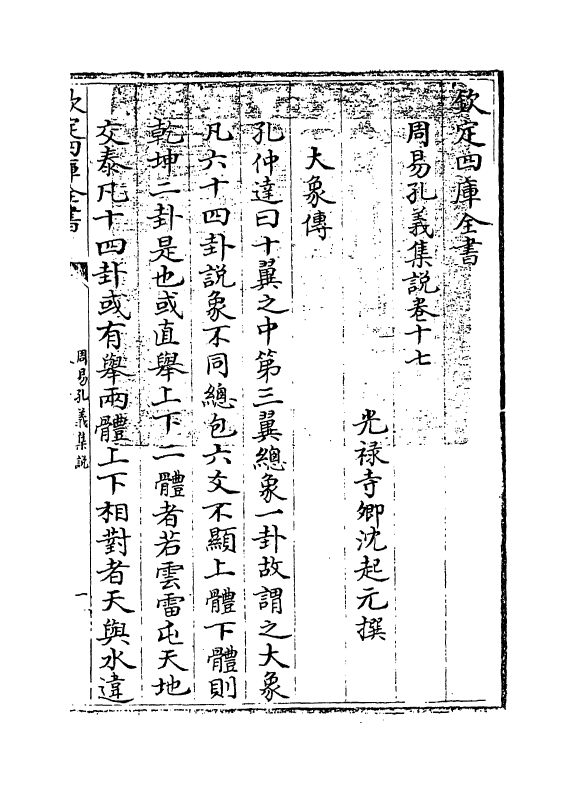 欽定四庫全書
周易孔義集說卷十七
光禄寺卿沈起元撰
大象傳
孔仲達曰十翼之中第三翼總象一卦故謂之大象
凡六十四卦說象不同總包六爻不顯上體下體則
乾坤二卦是也或直舉上下二體者若雲雷屯天地
交泰凡十四卦或有舉兩體上下相對者天與水違
欽定四庫全書
周易孔義集說
一